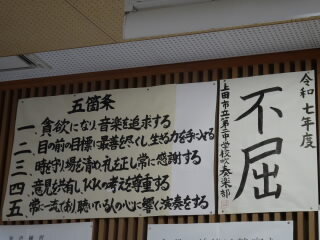 五箇条
一、貪欲になり、音楽を追求する
二、目の前の目標に最善を尽くし、生きる力を手に入れる
三、時を守り、場を清め、礼を正し、常に感謝する
四、意見を共有し、1人1人の考えを尊重する
五、常に一流であり、聴いている人の心に響く演奏をする
令和七年度
不屈
上田市立第二中学校吹奏楽部